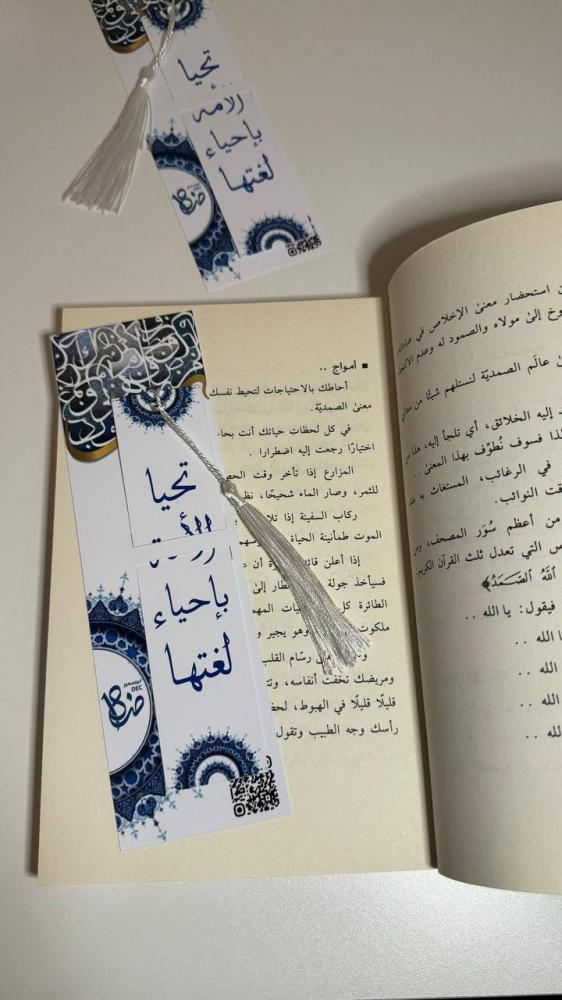 تحيا
الأمة
بإحياء
لغتها
ض
18
تحيا
الأمة
بإحياء
لغتها
ديسمبر
DEC
ض
18
■ أمواج ..
أحاطك بالاحتياجات لتحيط نفسك
معنى الصمديّة.
في كل لحظات حياتك أنت بحا
اختيارًا رجعت إليه اضطرارا .
المزارع إذا تأخر وقت الحص
للثمر، وصار الماء شحيحًا، نظ
ركاب السفينة إذا تلا
الموت طمأنينة الحياة
إذا أعلن قائد
فسيأخذ جولة
الطائرة كل
ملكوت وهو يجير و
رسّام القلب
ومريضك تخفت أنفاسه، وتت
قليلًا قليلًا في الهبوط، لحظ
رأسك وجه الطبيب وتقول
ن استحضار معنىٰ الإخلاص في عباداته
وخ إلىٰ مولاه والصمود له وعدم الالتفات
عالَم الصمديّة لنستلهم شيئًا من معاني
إليه الخلائق، أي تلجأ إليه، هذا من
ذا فسوف نُطوِّف بهذا المعنىٰ ..
في الرغائب، المستغاث به عند
قت النوائب.
من أعظم سُوَر المصحف، ومن
ص التي تعدل ثلث القرآن الكريم:
ٱللَّهُ ٱلصَّمَدُ﴾
فيقول: يا الله ..
يا الله ..
الله ..
الله ..
الله ..